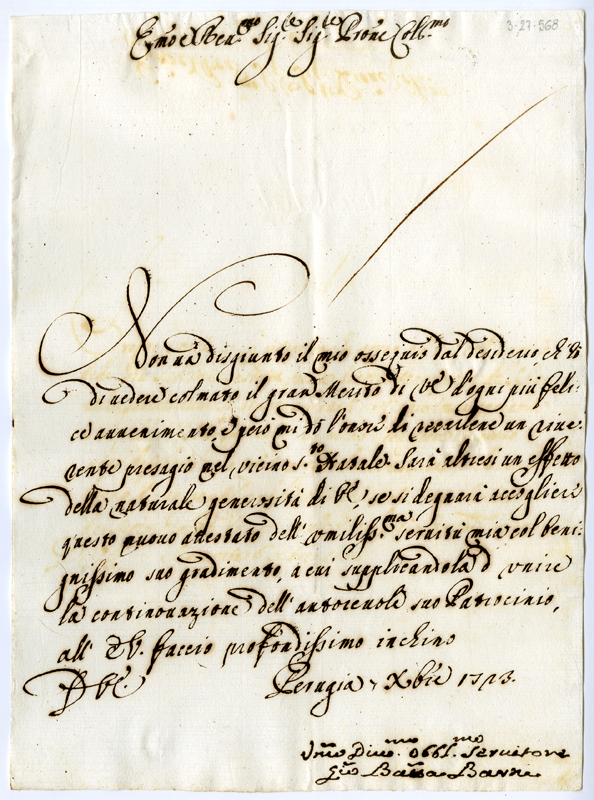 Emo e Ren.mo Sig.re Sig.re Prone Coll.mo
3-27-568
Non và disgiunto il mio ossequio dal desiderio, ch'hò
di vedere colmato il gran Merito di VE d'ogni più feli-
ce avvenimento, e però mi dò l'onore di recarlene un rive-
rente presagio nel vicino S.to Natale. Sarà altresì un effetto
della naturale generosità di VE, se si degnarà accogliere
questo nuovo attestato dell' umiliss.ma servitù mia col beni-
gnissimo suo gradimento, a cui supplicandola d' unire
la continovazione dell' autorevole suo Patrocinio,
all' E.V. faccio profondissimo inchino
D VE.
Perugia 7 Xbre 1723.
Vmo Divo.mo Obbl.mo Servitore
Gio Batta